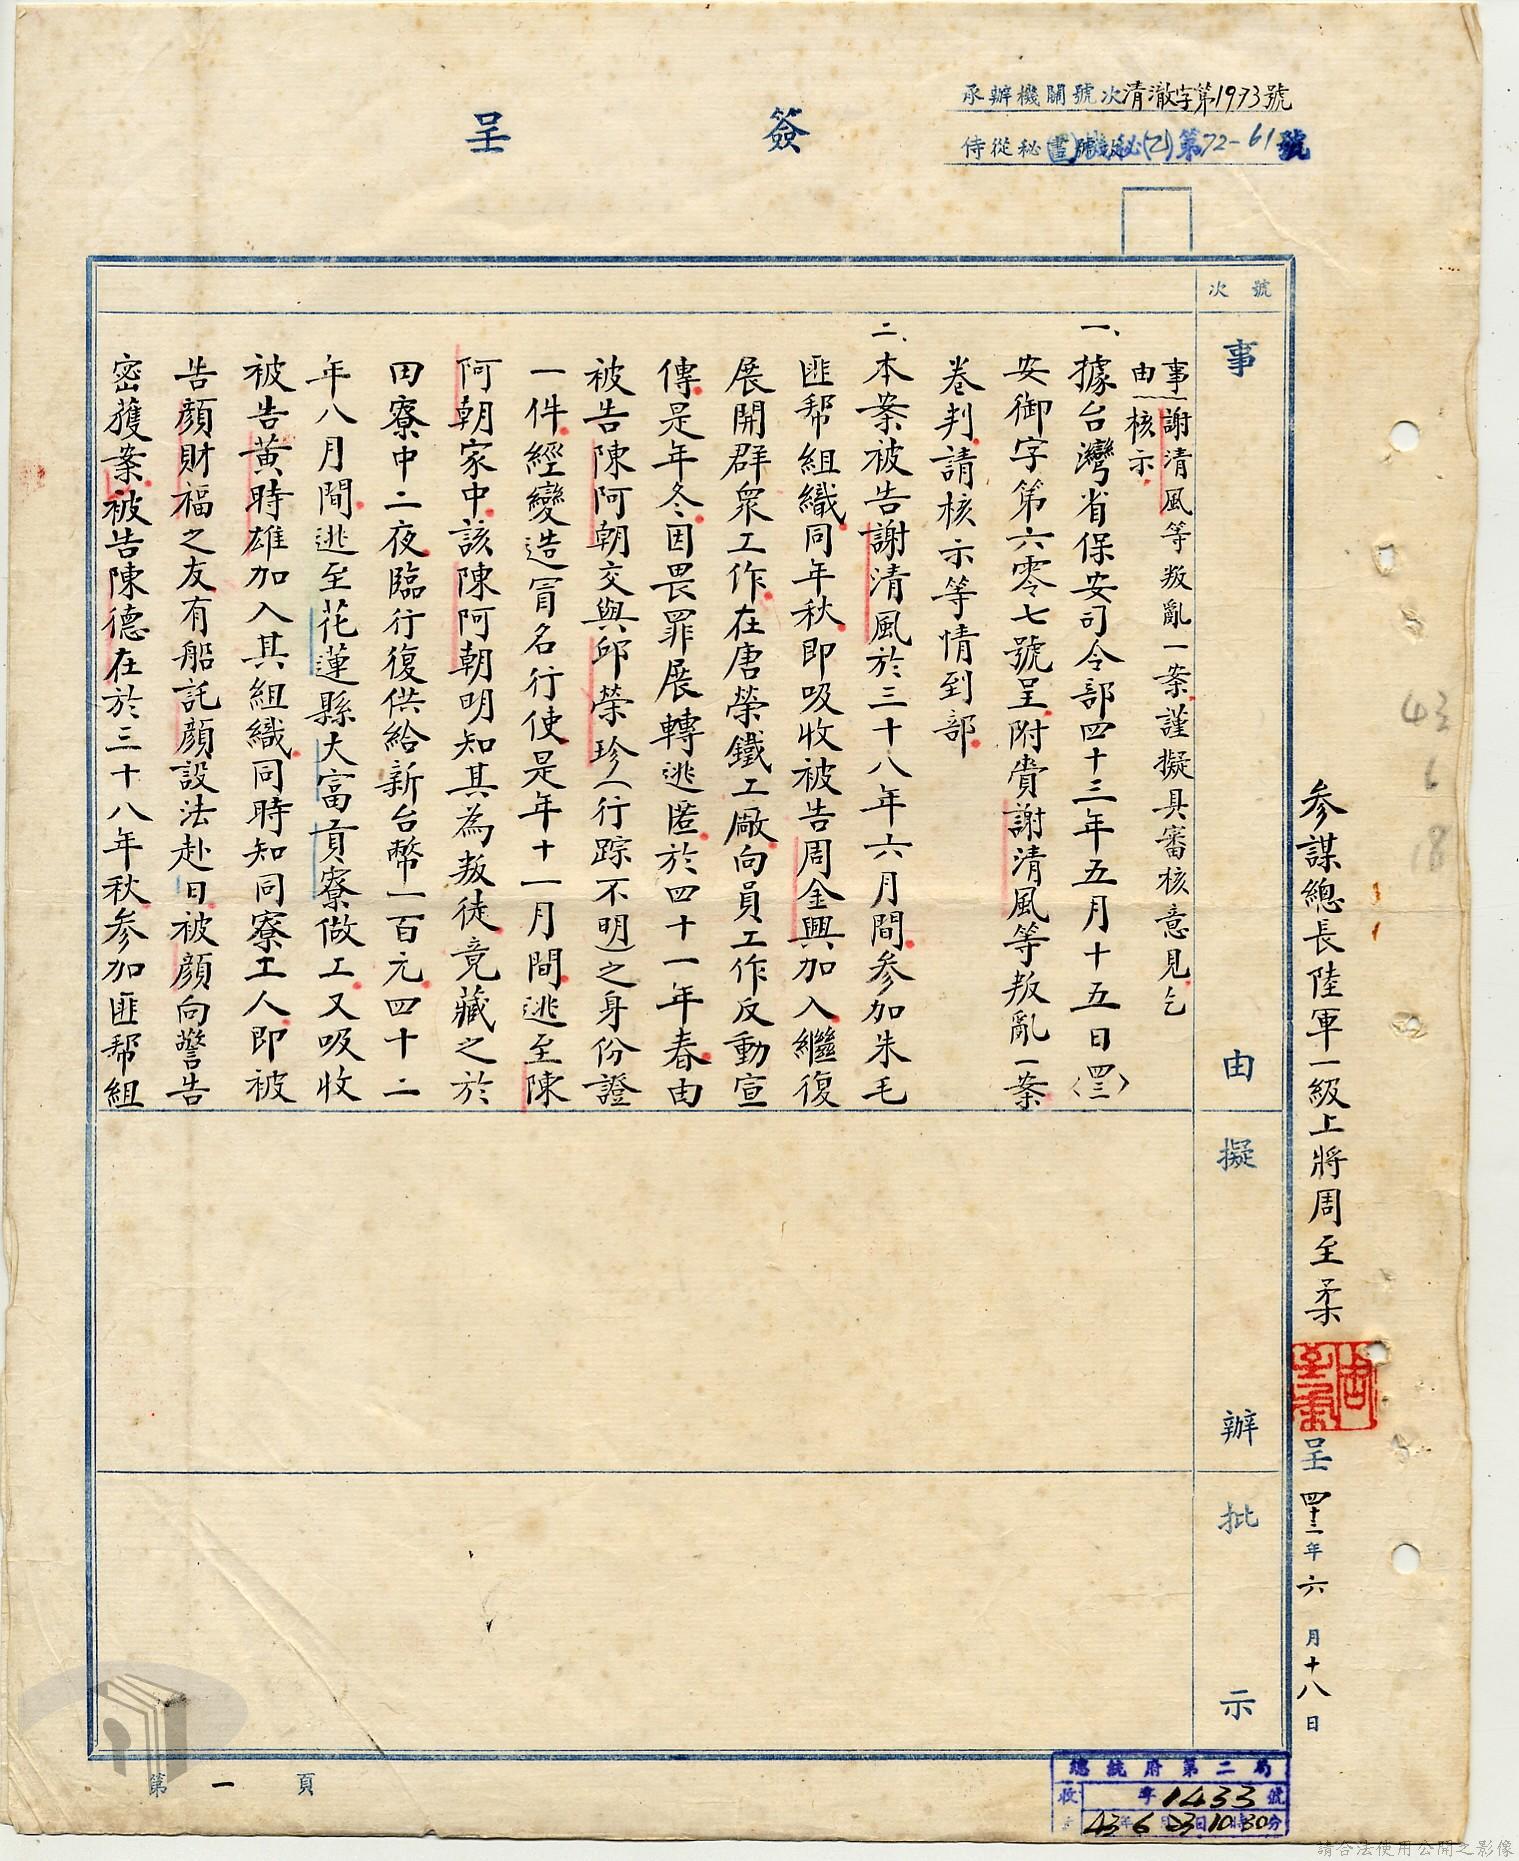 簽呈
承辦機關號次清澈字第1973號
侍從秘書號機秘(乙)第72-61號
參謀總長陸軍一級上將周至柔
周至柔
呈四十三年六月十八日
43
6
18
號次
事由
擬辦
批示
事由
謝清風等叛亂一案謹擬具審核意見乞
核示
一、據台灣省保安司令部四十三年五月十五日〈四三〉
安御字第六零七號呈附賫謝清風等叛亂一案
卷判請核示等情到部
二、本案被告謝清風於三十八年六月間參加朱毛
匪幫組織同年秋即吸收被告周金興加入繼復
展開群眾工作在唐榮鐵工廠向員工作反動宣
傳是年冬因畏罪展轉逃匿於四十一年春由
被告陳阿朝交與邱榮珍(行踪不明)之身份證
一件經變造冒名行使是年十一月間逃至陳
阿朝家中該陳阿朝明知其為叛徒竟藏之於
田寮中二夜臨行復供給新台幣一百元四十二
年八月間逃至花蓮縣大富貢寮做工又吸收
被告黃時雄加入其組織同時知同寮工人即被
告顏財福之友有船託顏設法赴日被顏向警告
密獲案被告陳德在於三十八年秋參加匪幫組
第一頁
總統府第二局
收 字1433號
43年6月23日10時30分
請合法使用公開之影像